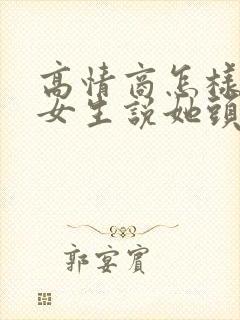 高情商怎樣
女生說她頭
郭宴賓